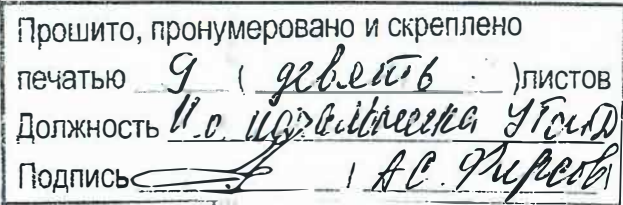 Прошито, пронумеровано и скреплено
печатью 9 ( девять )листов
Должность И.о. начальника
Подпись / А.С. Фирсов